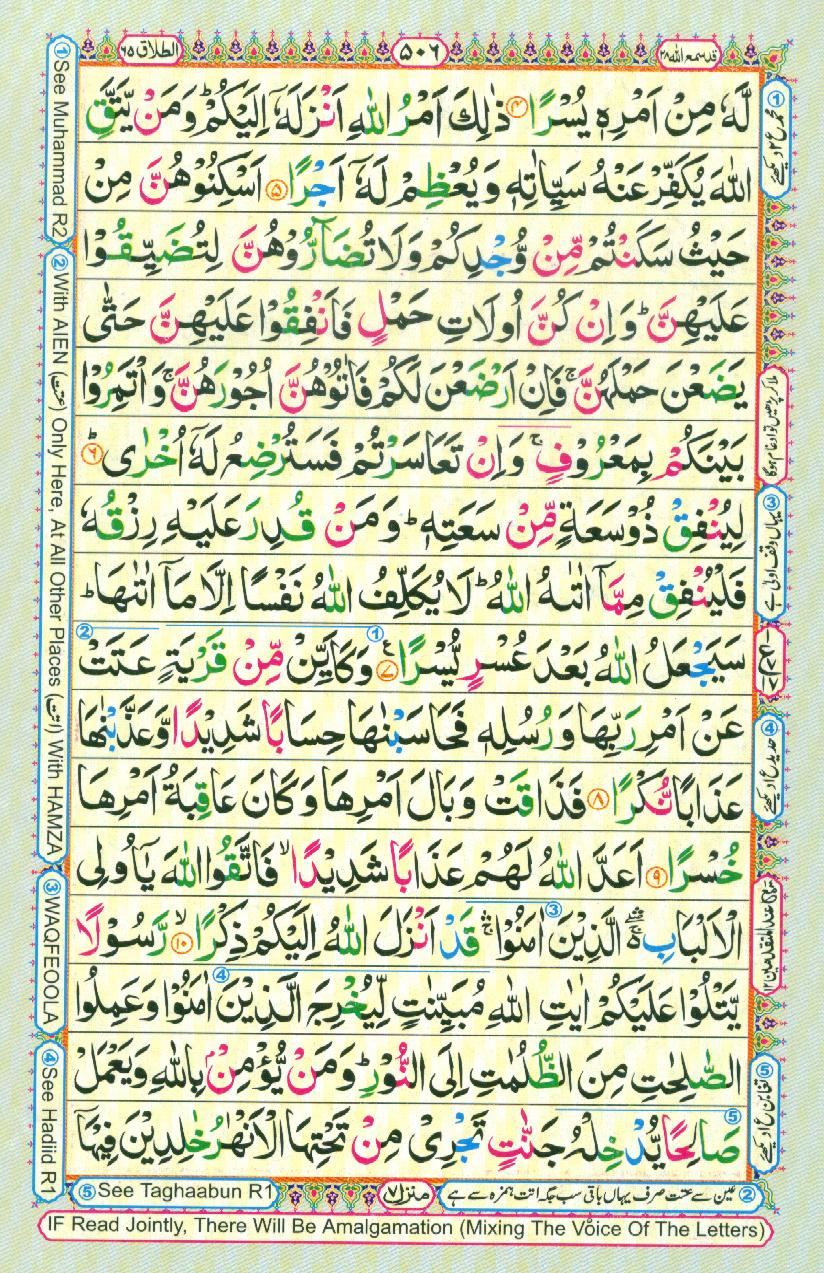 الطلاق ٦٥
٥٠٦
قد سمع الله ٢٨
لَّهٗ مِنْ اَمْرِهٖ يُسْرًا ۴ ذٰلِكَ اَمْرُ اللّٰهِ اَنْزَلَهٗۤ اِلَيْكُمْ ؕ وَمَنْ يَّتَّقِ
اللّٰهَ يُكَفِّرْ عَنْهُ سَيِّاٰتِهٖ وَيُعْظِمْ لَهٗۤ اَجْرًا ۵ اَسْكِنُوْهُنَّ مِنْ
حَيْثُ سَكَنْتُمْ مِّنْ وُّجْدِكُمْ وَلَا تُضَآرُّوْهُنَّ لِتُضَيِّقُوْا
عَلَيْهِنَّ ؕ وَاِنْ كُنَّ اُولَاتِ حَمْلٍ فَاَنْفِقُوْا عَلَيْهِنَّ حَتّٰى
يَضَعْنَ حَمْلَهُنَّ ۚ فَاِنْ اَرْضَعْنَ لَكُمْ فَاٰتُوْهُنَّ اُجُوْرَهُنَّ ۚ وَاْتَمِرُوْا
بَيْنَكُمْ بِمَعْرُوْفٍ ۚ وَاِنْ تَعَاسَرْتُمْ فَسَتُرْضِعُ لَهٗۤ اُخْرٰى ؕ ۶
لِيُنْفِقْ ذُوْ سَعَةٍ مِّنْ سَعَتِهٖ ؕ وَمَنْ قُدِرَ عَلَيْهِ رِزْقُهٗ
فَلْيُنْفِقْ مِمَّاۤ اٰتٰىهُ اللّٰهُ ؕ لَا يُكَلِّفُ اللّٰهُ نَفْسًا اِلَّا مَاۤ اٰتٰىهَا ؕ
سَيَجْعَلُ اللّٰهُ بَعْدَ عُسْرٍ يُّسْرًا ۷ وَكَاَيِّنْ مِّنْ قَرْيَةٍ عَتَتْ
عَنْ اَمْرِ رَبِّهَا وَرُسُلِهٖ فَحَاسَبْنٰهَا حِسَابًا شَدِيْدًا وَّعَذَّبْنٰهَا
عَذَابًا نُّكْرًا ۸ فَذَاقَتْ وَبَالَ اَمْرِهَا وَكَانَ عَاقِبَةُ اَمْرِهَا
خُسْرًا ۹ اَعَدَّ اللّٰهُ لَهُمْ عَذَابًا شَدِيْدًا ۙ فَاتَّقُوا اللّٰهَ يٰۤاُولِى
الْاَلْبَابِ ۛۚ الَّذِيْنَ اٰمَنُوْا ۛؕ قَدْ اَنْزَلَ اللّٰهُ اِلَيْكُمْ ذِكْرًا ۙ ۱۰ رَّسُوْلًا
يَّتْلُوْا عَلَيْكُمْ اٰيٰتِ اللّٰهِ مُبَيِّنٰتٍ لِّيُخْرِجَ الَّذِيْنَ اٰمَنُوْا وَعَمِلُوا
الصّٰلِحٰتِ مِنَ الظُّلُمٰتِ اِلَى النُّوْرِ ؕ وَمَنْ يُّؤْمِنْ بِاللّٰهِ وَيَعْمَلْ
صَالِحًا يُّدْخِلْهُ جَنّٰتٍ تَجْرِىْ مِنْ تَحْتِهَا الْاَنْهٰرُ خٰلِدِيْنَ فِيْهَاۤ
① See Muhammad R2
② With AIEN (عتت) Only Here, At All Other Places (اتت) With HAMZA
③ WAQFEOOLA
④ See Hadiid R1
① محمد ع ۲ دیکھئے
ملا کر پڑھیں تو ادغام ہوگا
③ یہاں وقف اولیٰ ہے
④ حدید ع ۱ دیکھئے
⑤ تغابن ع ۱ دیکھئے
② عین سے عتت صرف یہاں باقی سب جگہ اتت ہمزہ سے ہے
منزل ٧
⑤ See Taghaabun R1
IF Read Jointly, There Will Be Amalgamation (Mixing The Voice Of The Letters)